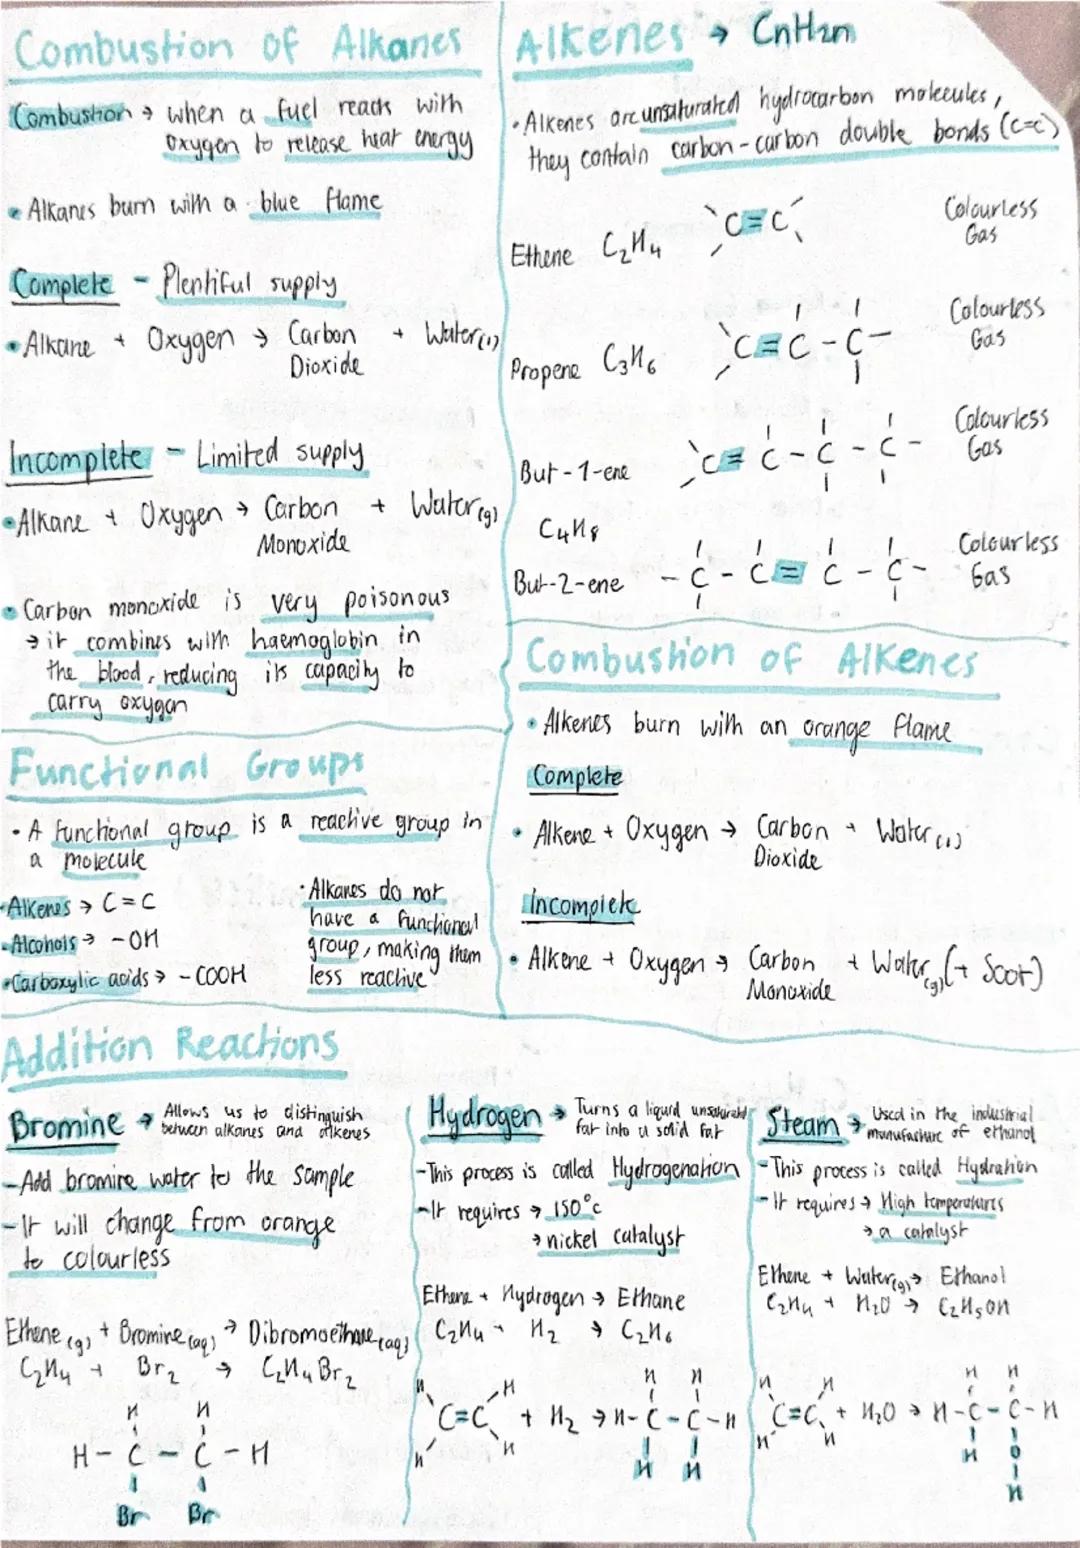 Combustion of Alkanes
Combustion → when a fuel reacts with
oxygen to release heat energy
• Alkanes burn with a blue flame
Complete - Plentiful supply
• Alkane + Oxygen → Carbon + Water(l)
Dioxide
Incomplete - Limited supply
• Alkane + Oxygen → Carbon + Water(g)
Monoxide
• Carbon monoxide is very poisonous
→ it combines with haemoglobin in
the blood, reducing its capacity to
carry oxygen
Functional Groups
• A functional group is a reactive group in
a molecule
• Alkenes → C=C
• Alcohols → -OH
• Carboxylic acids → -COOH
• Alkanes do not
have a functional
group, making them
less reactive
Alkenes → CnH2n
• Alkenes are unsaturated hydrocarbon molecules,
they contain carbon-carbon double bonds (C=C)
Ethene C2H4 C=C Colourless
Gas
Propene C3H6 C=C-C- Colourless
Gas
But-1-ene C=C-C-C- Colourless
Gas
C4H8
But-2-ene -C-C=C-C- Colourless
Gas
Combustion of Alkenes
• Alkenes burn with an orange flame
Complete
• Alkene + Oxygen → Carbon + Water(l)
Dioxide
Incomplete
• Alkene + Oxygen → Carbon + Water(g) (+ Soot)
Monoxide
Addition Reactions
Bromine → Allows us to distinguish
between alkanes and alkenes
- Add bromine water to the sample
- It will change from orange
to colourless
Ethene(g) + Bromine(aq) → Dibromoethane(aq)
C2H4 + Br2 → C2H4Br2
H H
H-C-C-H
Br Br
Hydrogen → Turns a liquid unsaturated
fat into a solid fat
- This process is called Hydrogenation
- It requires → 150°c
→ nickel catalyst
Ethene + Hydrogen → Ethane
C2H4 + H2 → C2H6
H H H H
C=C + H2 → H-C-C-H
H H H H
Steam → Used in the industrial
manufacture of ethanol
- This process is called Hydration
- It requires → High temperatures
→ a catalyst
Ethene + Water(g) → Ethanol
C2H4 + H2O → C2H5OH
H H H H
C=C + H2O → H-C-C-H
H H H O
H